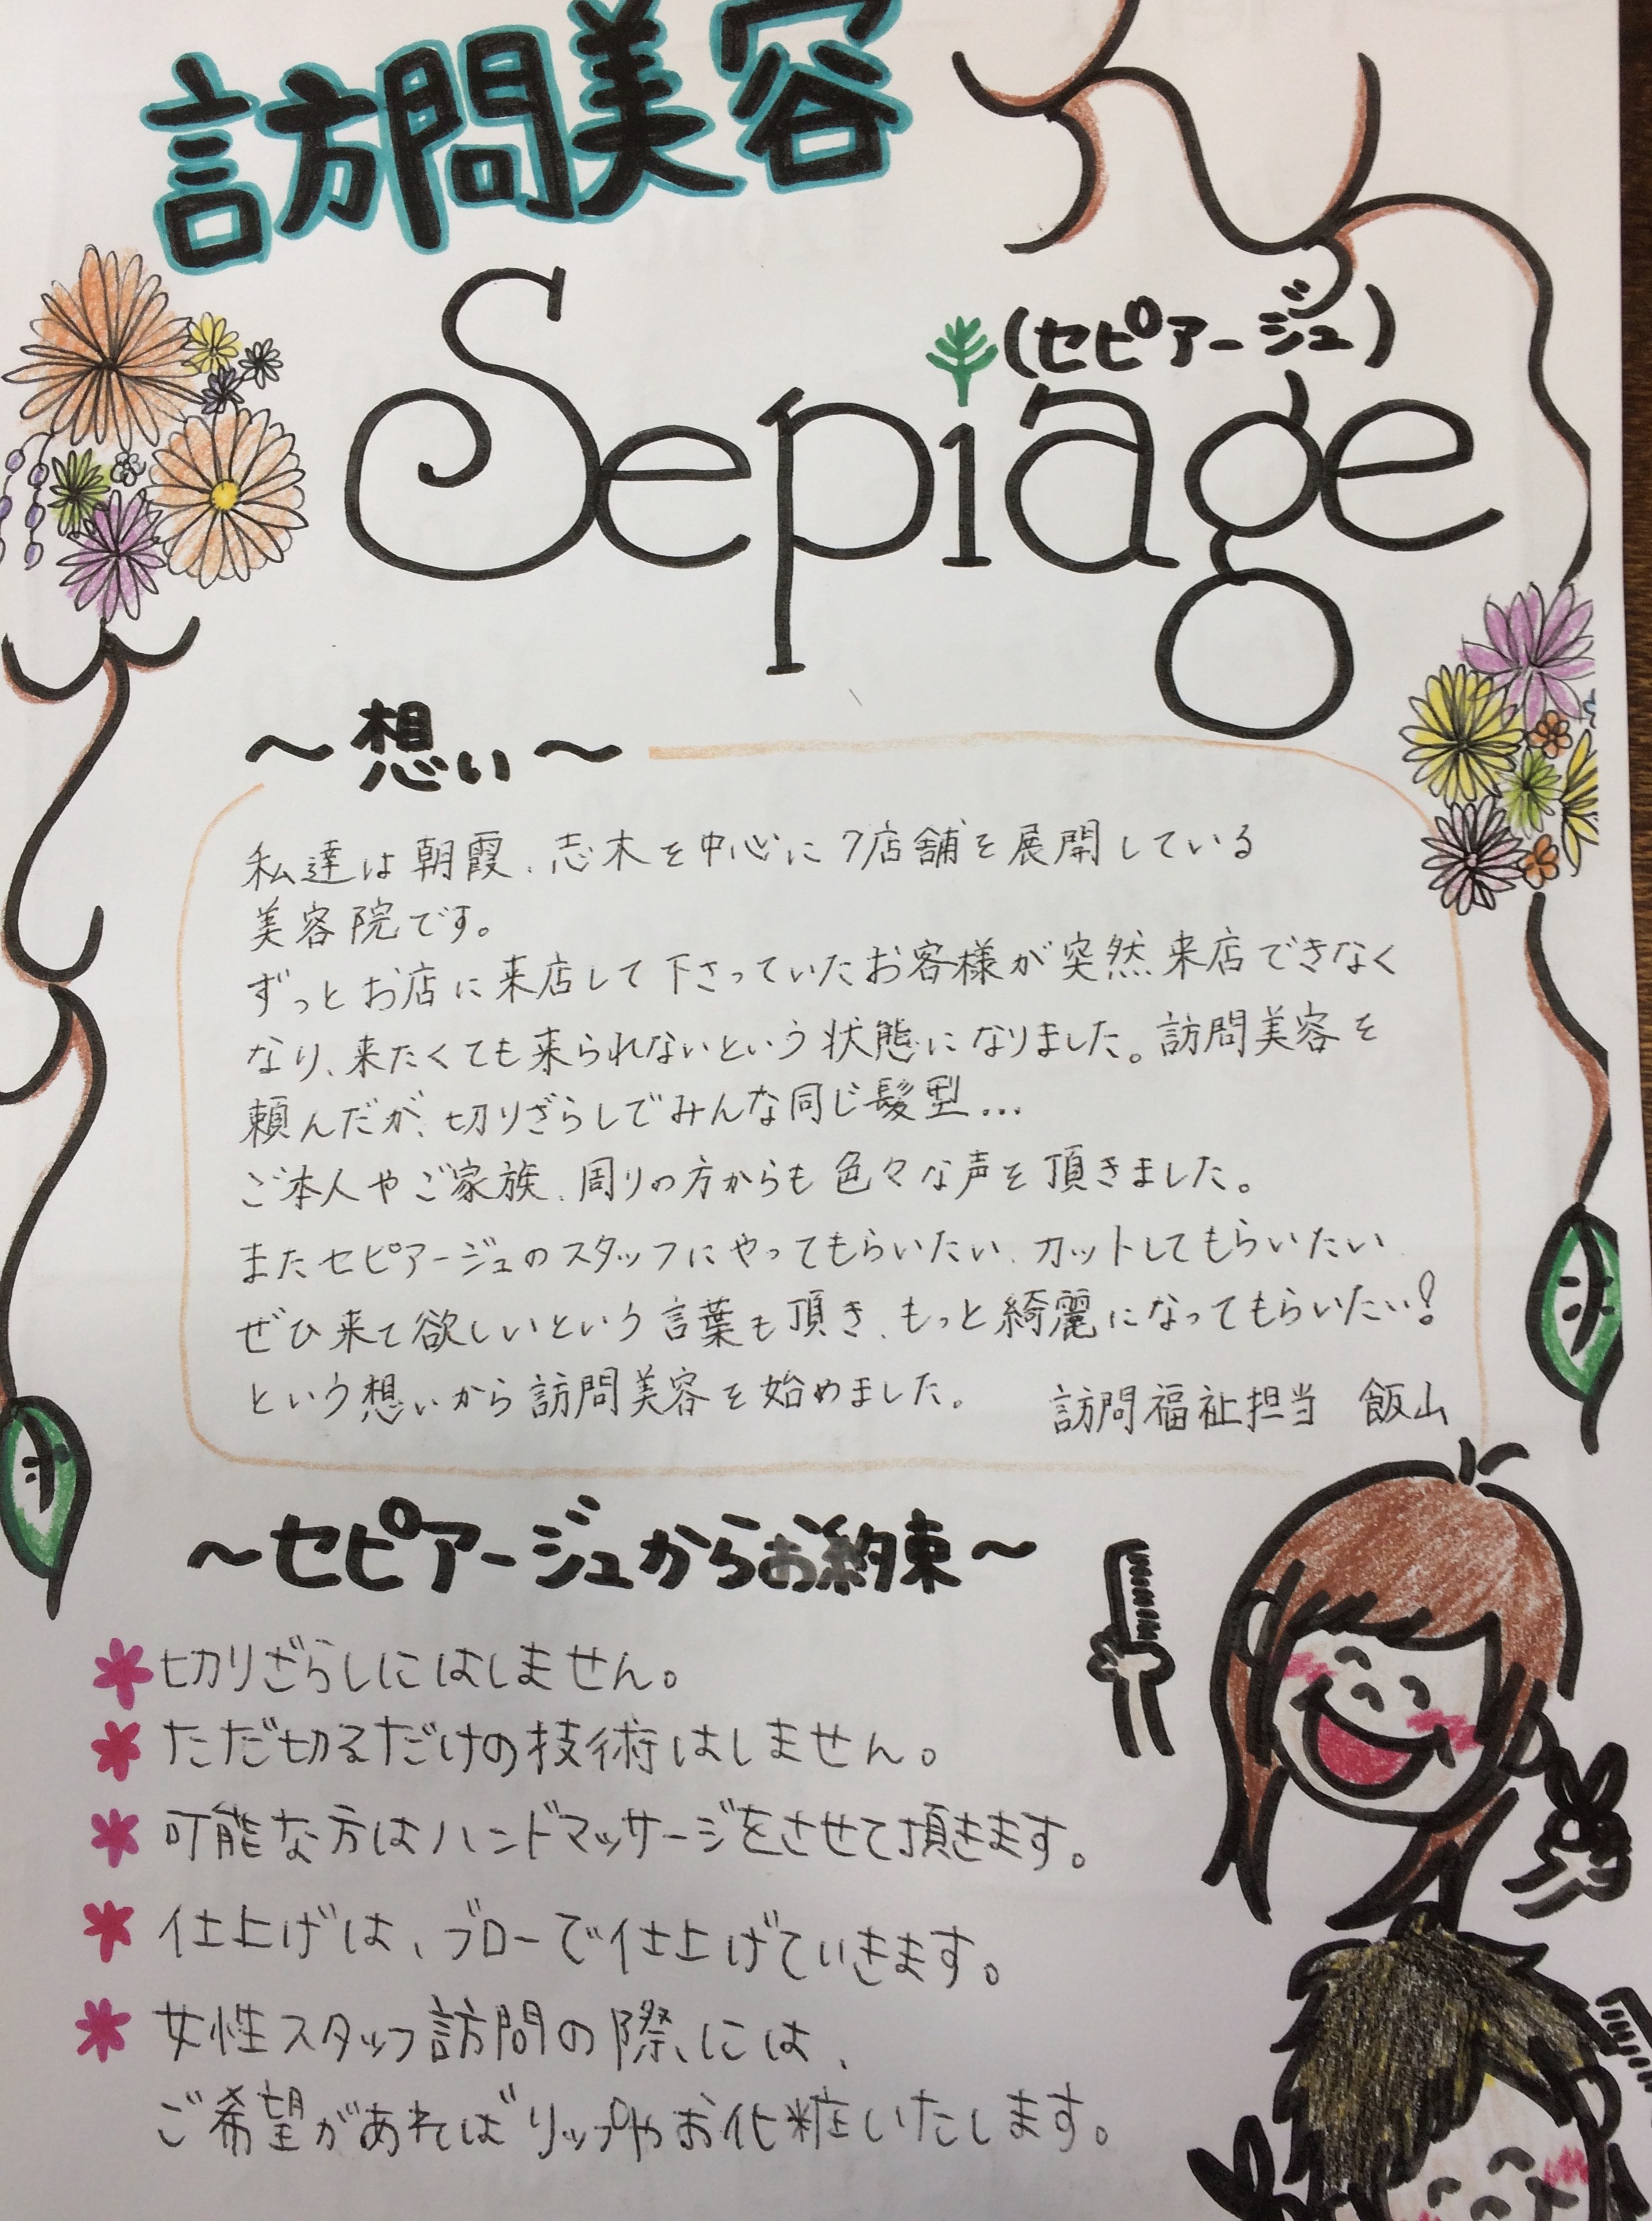 訪問美容
(セピアージュ)
Sepiage
～想い～
私達は朝霞、志木を中心に7店舗を展開している
美容院です。
ずっとお店に来店して下さっていたお客様が突然来店できなく
なり、来たくても来られないという状態になりました。訪問美容を
頼んだが、切りざらしでみんな同じ髪型...
ご本人やご家族、周りの方からも色々な声を頂きました。
またセピアージュのスタッフにやってもらいたい、カットしてもらいたい
ぜひ来て欲しいという言葉も頂き、もっと綺麗になってもらいたい!
という想いから訪問美容を始めました。 訪問福祉担当 飯山
～セピアージュからお約束～
切りざらしにはしません。
ただ切るだけの技術はしません。
可能な方はハンドマッサージをさせて頂きます。
仕上げは、ブローで仕上げていきます。
女性スタッフ訪問の際には、
ご希望があればリップやお化粧いたします。